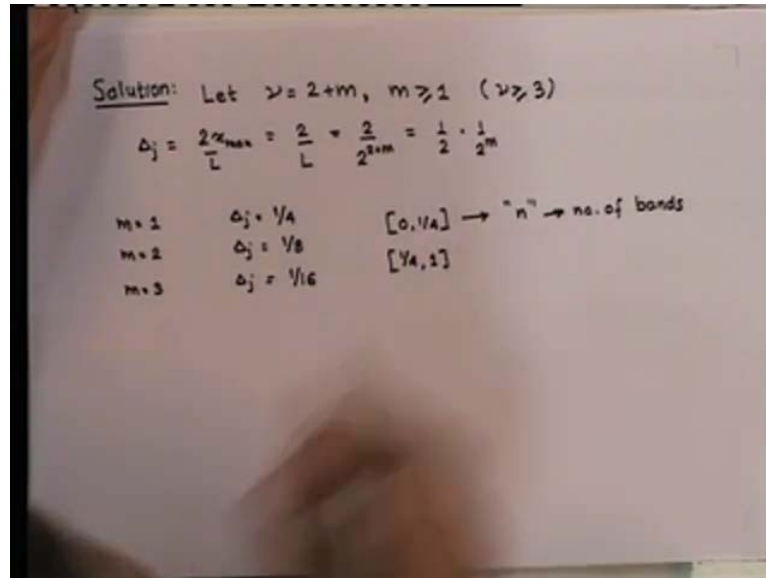 Solution: Let ν = 2+m, m ⩾ 1 (ν ⩾ 3)
Δj = 2x_max/L = 2/L = 2/2^(2+m) = 1/2 · 1/2^m
m = 1 Δj = 1/4 [0, 1/4] → "n" → no. of bands
m = 2 Δj = 1/8 [1/4, 1]
m = 3 Δj = 1/16